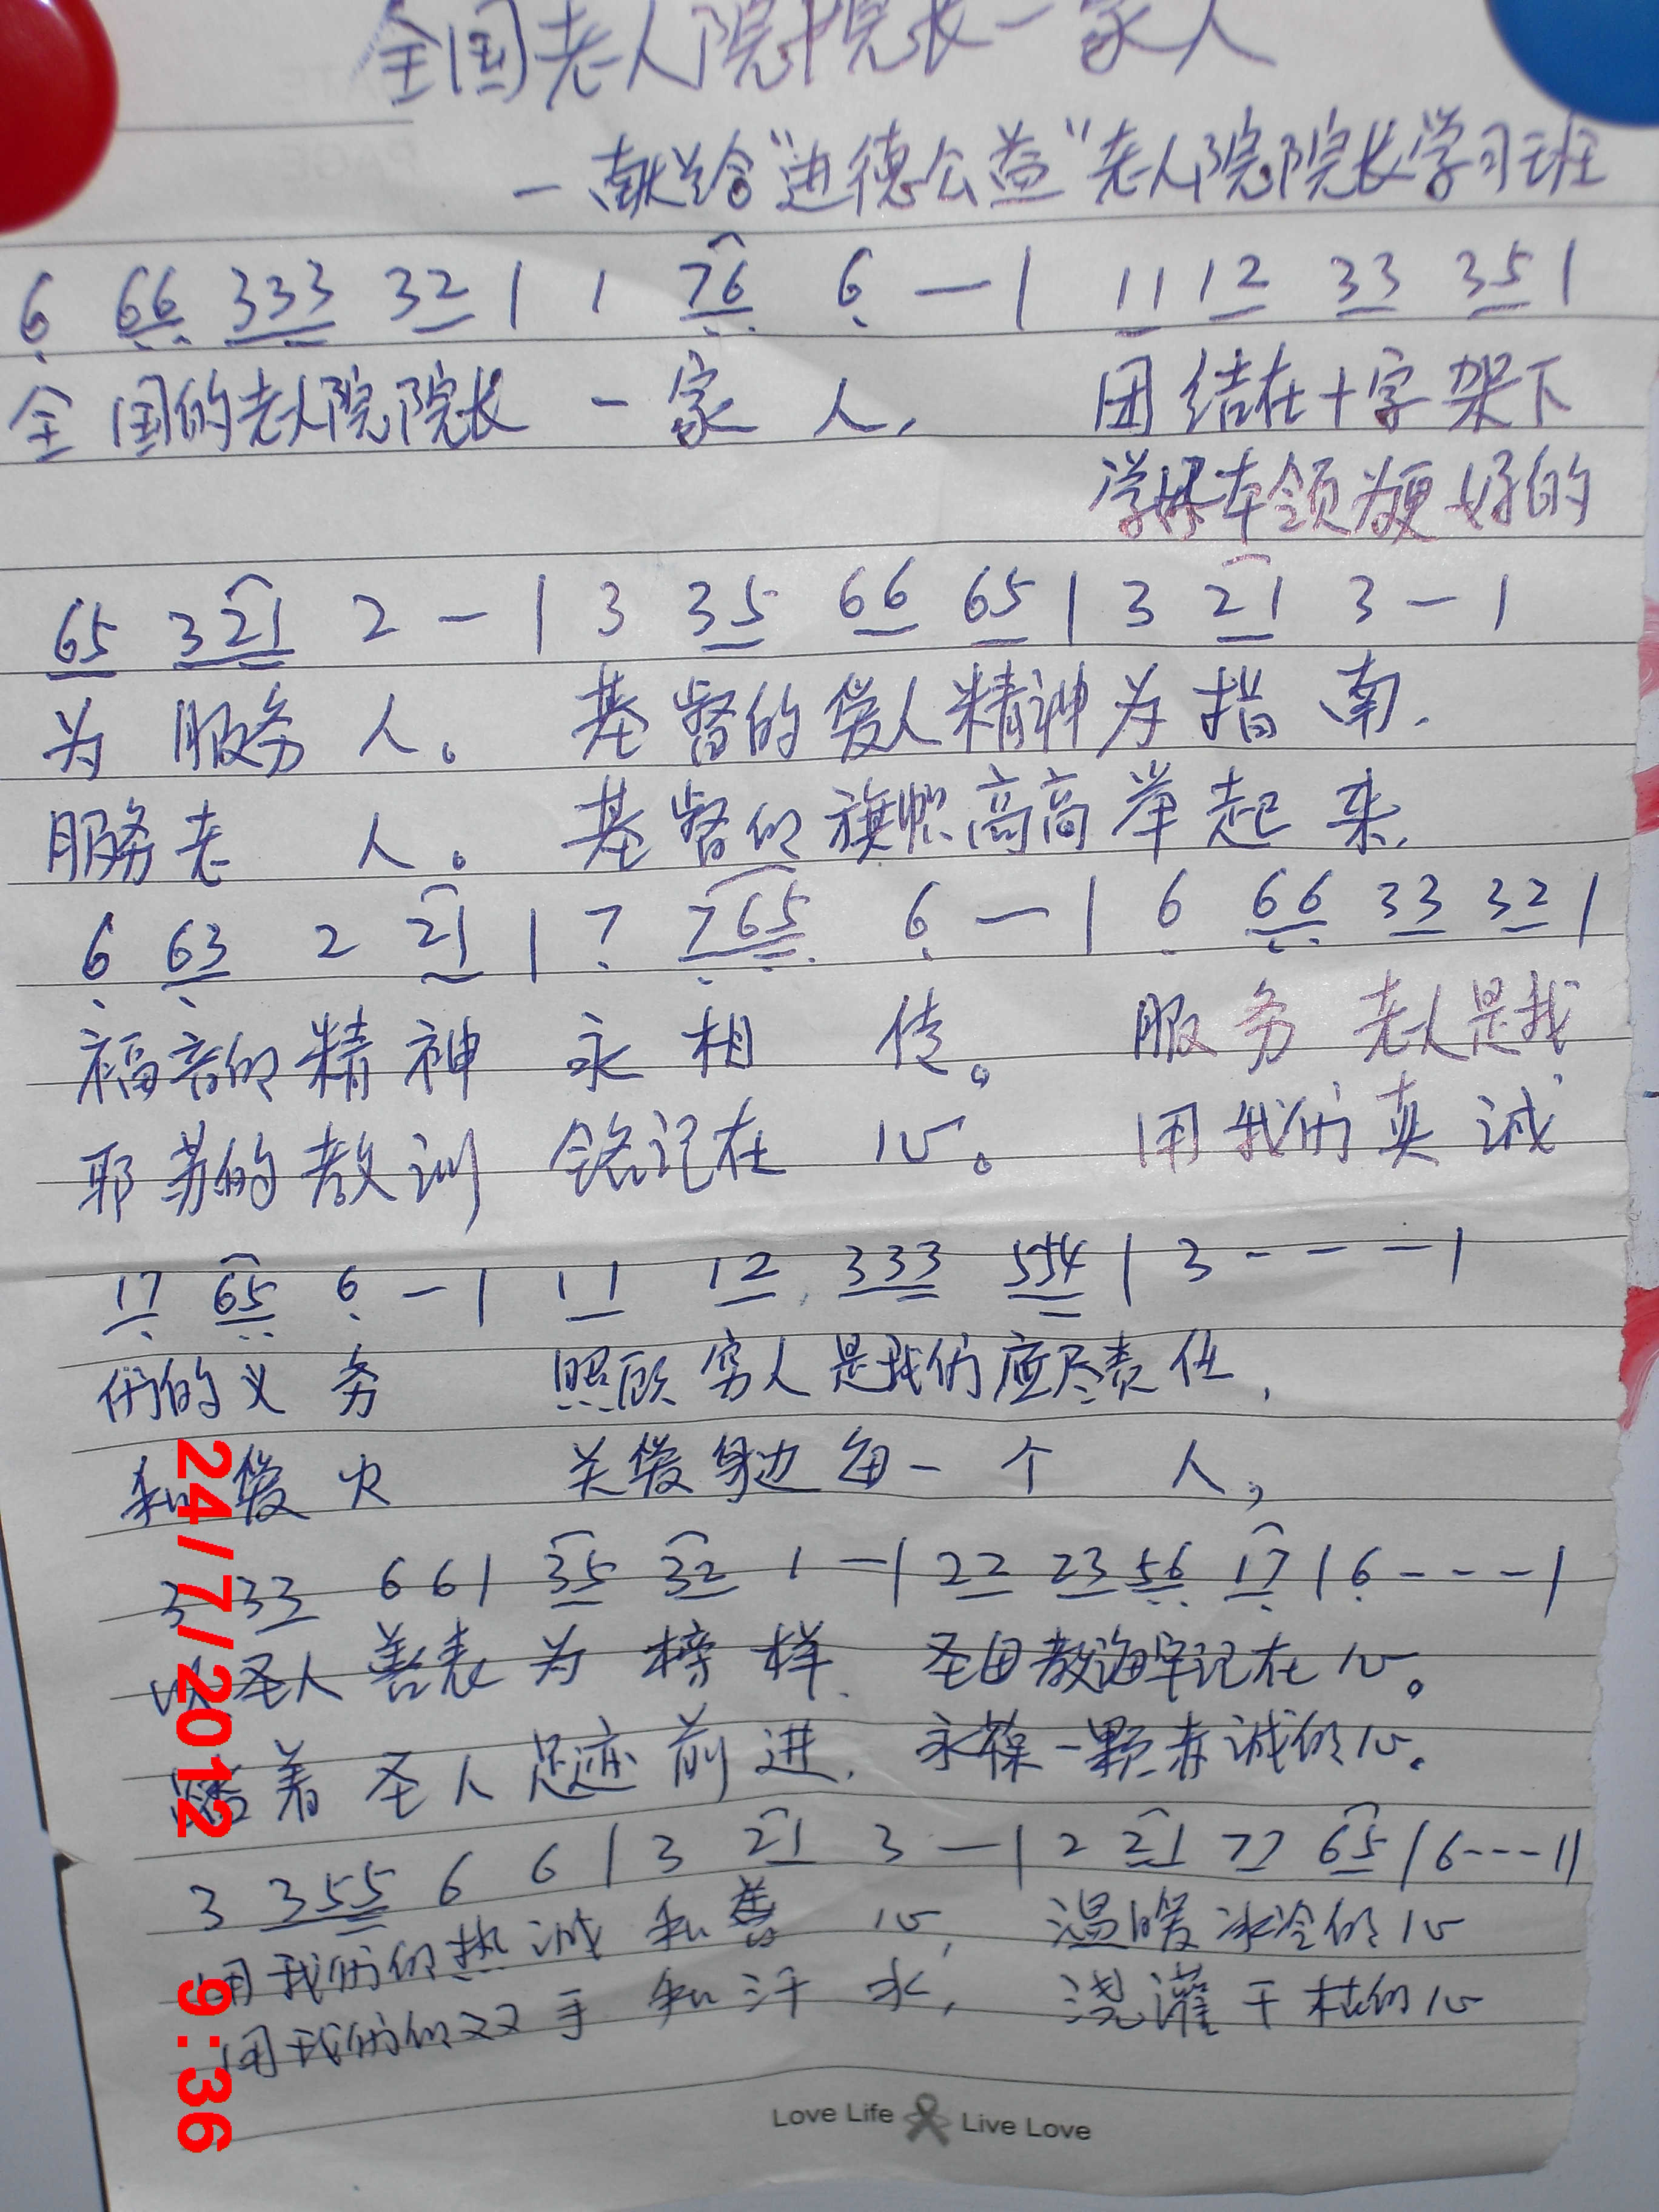 全国老人院院长一家人
—献给"进德公益"老人院院长学习班
6 66 333 32 | 1 76 6 — | 11 12 33 35 |
全国的老人院院长 一家人, 团结在十字架下
学好本领为更好的
65 321 2 — | 3 35 66 65 | 3 21 3 — |
为服务人。 基督的爱人精神为指南.
服务老人。 基督的旗帜高高举起来,
6 63 2 21 | 7 765 6 — | 6 66 33 32 |
福音的精神 永相传。 服务老人是我
耶苏的教训 铭记在心。 用我们真诚
17 65 6 — | 11 12 333 554 | 3 - - - |
们的义务 照顾穷人是我们应尽责任,
和爱火 关爱身边每一个人,
3 33 6 6 | 35 32 1 — | 22 23 56 17 | 6 - - - |
以圣人善表为榜样、 圣母教诲牢记在心。
踏着圣人足迹前进, 永葆一颗赤诚的心。
3 355 6 6 | 3 21 3 — | 2 21 77 65 | 6 - - - ||
用我们的热诚和善心, 温暖冰冷的心
用我们的双手和汗水, 浇灌干枯的心
Love Life Live Love
24/7/2012 9:36